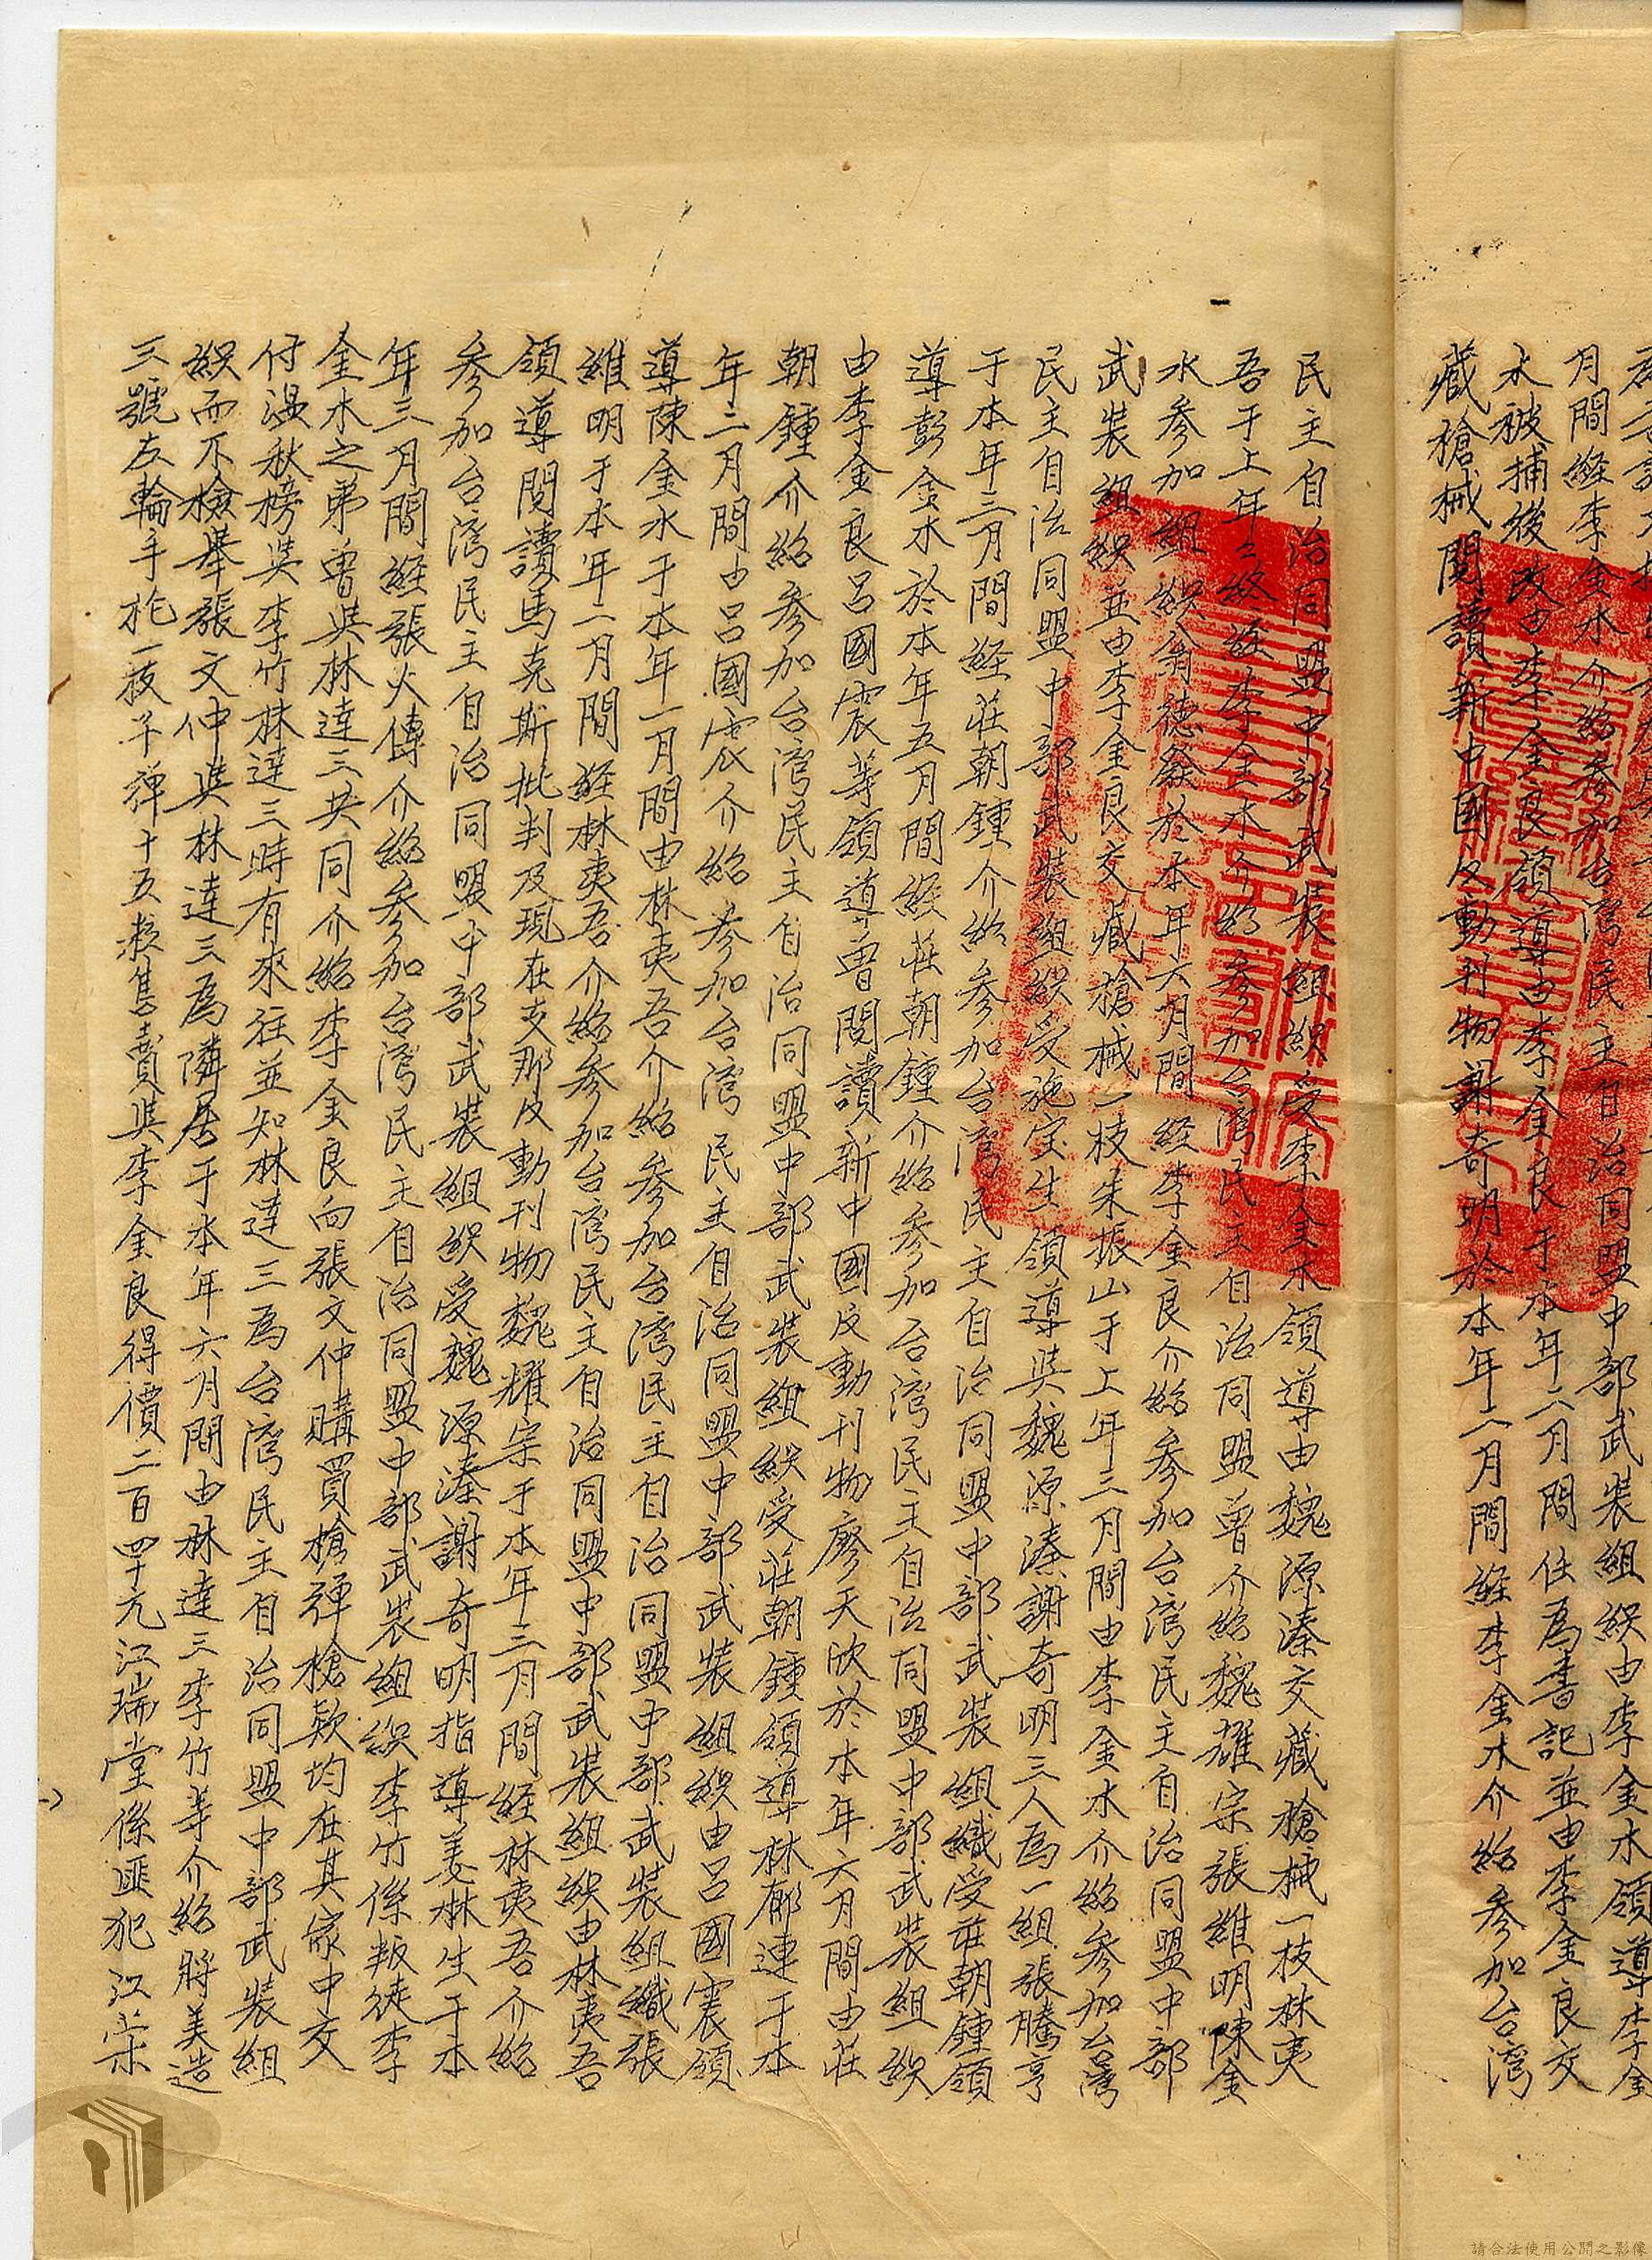 月間經李金水介紹參加台灣民主自治同盟中部武裝組織由李金水領導李金
水被捕後改由李金良領導由李金良于本年六月間任為書記並由李金良交
藏槍械閱讀新中國反動刊物謝奇明於本年二月間經李金水介紹參加台灣
民主自治同盟中部武裝組織受李金水領導由魏源溱交藏槍械一枝林夷
吾于上年年終經李金水介紹參加台灣民主自治同盟曾介紹魏耀宗張維明陳金
水參加組織翁德發於本年六月間經李金良介紹參加台灣民主自治同盟中部
武裝組織並由李金良交藏槍械一枝朱振山于上年三月間由李金水介紹參加台灣
民主自治同盟中部武裝組織受施宝生領導與魏源溱謝奇明三人為一組張騰亨
于本年三月間経莊朝鍾介紹參加台灣民主自治同盟中部武裝組織受莊朝鍾領
導彭金水於本年五月間經莊朝鍾介紹參加台灣民主自治同盟中部武裝組織
由李金良呂國震等領導曾閱讀新中國反動刊物廖天欣於本年六月間由莊
朝鍾介紹參加台灣民主自治同盟中部武裝組織受莊朝鍾領導林郁連于本
年二月間由呂國震介紹參加台灣民主自治同盟中部武裝組織由呂國震領
導陳金水于本年一月間由林夷吾介紹參加台灣民主自治同盟中部武裝組織張
維明于本年二月間經林夷吾介紹參加台灣民主自治同盟中部武裝組織由林夷吾
領導閱讀馬克斯批判及現在支那反動刊物魏耀宗于本年三月間経林夷吾介紹
參加台灣民主自治同盟中部武裝組織受魏源溱謝奇明指導姜林生于本
年三月間經張火傳介紹參加台灣民主自治同盟中部武裝組織李竹係叛徒李
金木之弟曾與林達三共同介紹李金良向張文仲購買槍彈槍款均在其家中交
付溫秋榜與李竹林達三時有來往並知林達三為台灣民主自治同盟中部武裝組
織而不檢舉張文仲與林達三為隣居于本年六月間由林達三李竹等介紹將美造
三號左輪手枪一枝子彈十五粒售賣與李金良得價二百四十元江瑞堂係匪犯江
請合法使用公開之影像